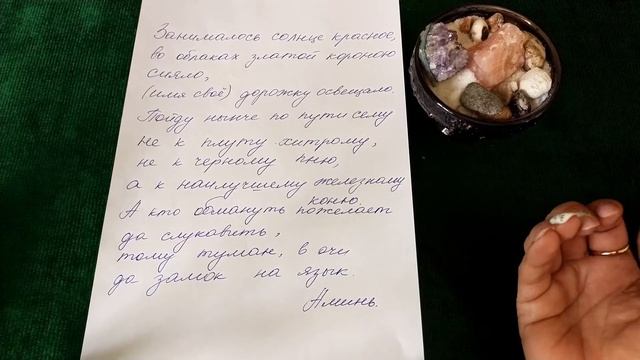 Занималось солнце красное,
во облаках златой короною
сияло,
(имя своё) дорожку освещало.
Пойду нынче по пути сему
не к плуту хитрому,
не к чёрному пню,
а к наилучшему железному
коню.
А кто обмануть пожелает
да слукавить,
тому туман, в очи
да замок на язык.
Аминь.